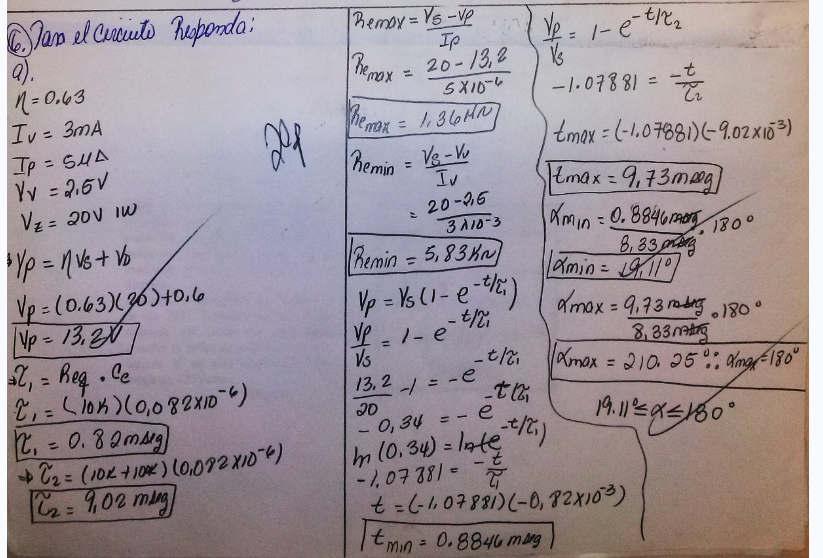 6. Para el Circuito Responda:
a).
η = 0.63
Iv = 3mA
Ip = 5μA
Vv = 2,5V
Vz = 20V 1W
→ Vp = ηVs + VD
Vp = (0.63)(20)+0.6
Vp = 13,2V
→ τ1 = Req . Ce
τ1 = (10K)(0,082x10⁻⁶)
τ1 = 0.82 mseg
→ τ2 = (10K+10K)(0,082x10⁻⁶)
τ2 = 9,02 mseg
Remax = Vs - Vp
Ip
Remax = 20 - 13,2
5x10⁻⁶
Remax = 1,36MΩ
Remin = Vs - Vv
Iv
= 20 - 2,5
3x10⁻³
Remin = 5,83KΩ
Vp = Vs(1 - e^-t/τ1)
Vp = 1 - e^-t/τ1
Vs
13,2 - 1 = - e^-t/τ1
20
- 0,34 = - e^-t/τ1
ln (0.34) = ln(e^-t/τ1)
-1.07881 = -t
τ1
t = (-1.07881)(-0,82x10⁻³)
tmin = 0.8846 mseg
Vp = 1 - e^-t/τ2
Vs
-1.07881 = -t
τ2
tmax = (-1.07881)(-9.02x10⁻³)
tmax = 9,73 mseg
αmin = 0.8846 mseg . 180°
8,33 mseg
αmin = 19,11°
αmax = 9,73 mseg . 180°
8,33 mseg
αmax = 210.25° ∴ αmax = 180°
19.11° ≤ α ≤ 180°